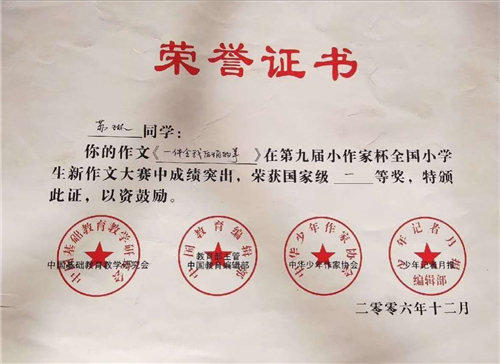 荣誉证书
苏琳同学:
你的作文《一件令我后悔的事》在第九届小作家杯全国小学
生新作文大赛中成绩突出，荣获国家级二等奖，特颁
此证，以资鼓励。
中国基础教育教学研究会
中国基础教育教学研究会
中国教育编辑部
教育部主管
中国教育编辑部
中华少年作家协会
中华少年作家协会
少年记者月报编辑部
少年记者月报
二零零六年十二月